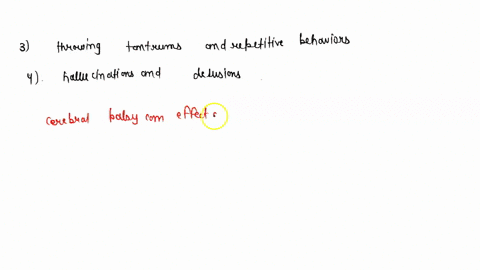 3) throwing tantrums and repetitive behaviors
4). hallucinations and delusions .
cerebral palsy can effect.